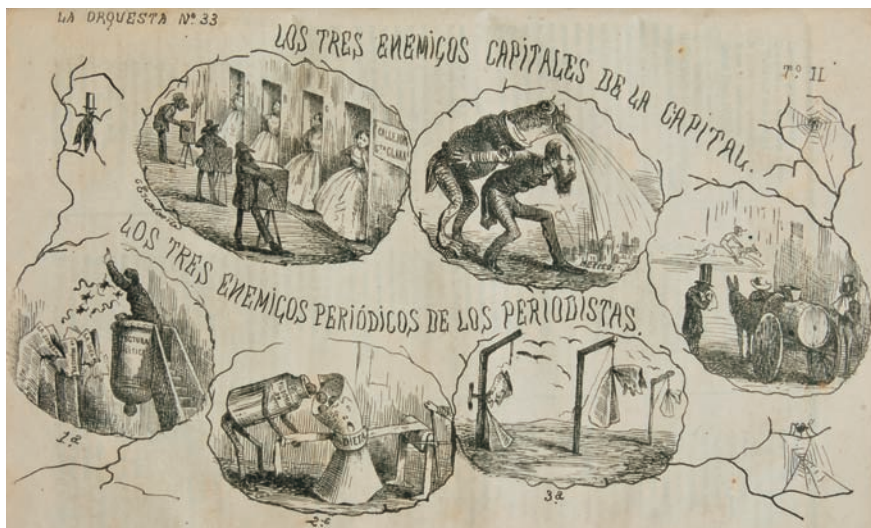 LA ORQUESTA Nº. 33
Tº. II
LOS TRES ENEMIGOS CAPITALES DE LA CAPITAL.
CALLEJON
STA CLARA
MÉXICO.
LOS TRES ENEMIGOS PERIÓDICOS DE LOS PERIODISTAS.
1.a
2.a
3.a